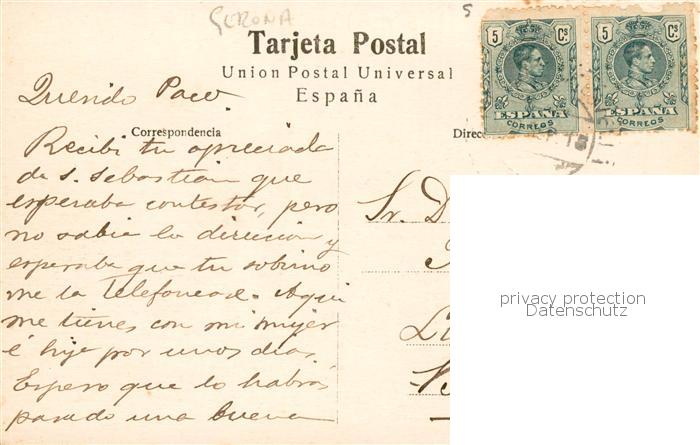 GERONA
5
Tarjeta Postal
Union Postal Universal
España
5 Cs 5 Cs
ESPAÑA ESPAÑA
CORREOS CORREOS
Querido Paco.
Correspondencia
Direc
Recibi tu apreciada
de S. Sebastian que
esperaba contestar, pero
no sabia la direccion y
esperaba que tu sobrino
me la telefonease. Aqui
me tienes con mi mujer
é hija por unos dias.
Espero que lo habrás
pasado una buena
Sr. D
privacy protection
Datenschutz